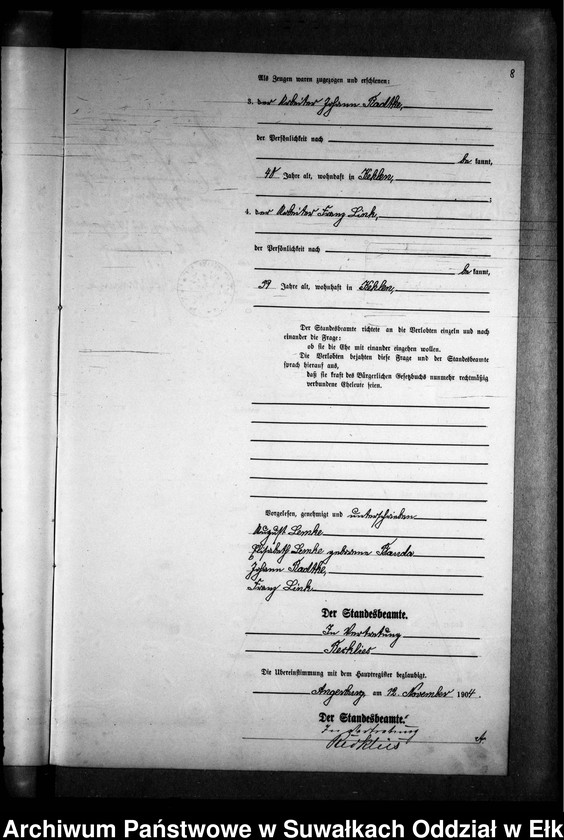 8
Als Zeugen waren zugezogen und erschienen:
3. der Arbeiter Johann Radtke,
der Persönlichkeit nach
be kannt,
48 Jahre alt, wohnhaft in Kehlen,
;
4. der Arbeiter Franz Link,
der Persönlichkeit nach
be kannt,
39 Jahre alt, wohnhaft in Kehlen,
Der Standesbeamte richtete an die Verlobten einzeln und nach
einander die Frage:
ob sie die Ehe mit einander eingehen wollen.
Die Verlobten bejahten diese Frage und der Standesbeamte
sprach hierauf aus,
daß sie kraft des Bürgerlichen Gesetzbuchs nunmehr rechtmäßig
verbundene Eheleute seien.
Vorgelesen, genehmigt und unterschrieben
August Lemke
Elisabeth Lemke geborene
Johann Radtke,
Franz Link.
Der Standesbeamte.
In Vertretung
Die Übereinstimmung mit dem Hauptregister beglaubigt.
Angerburg am 12. November 1904.
Der Standesbeamte.
In Vertretung
Archiwum Państwowe w Suwałkach Oddział w Ełk